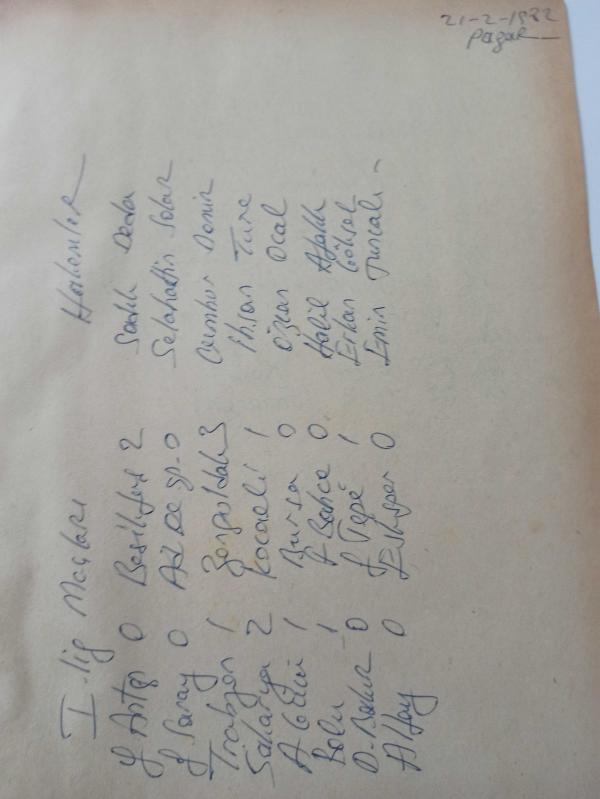 21-2-1982
Pazar
I-lig Maçları Hakemler
G Antep 0 Beşiktaş 2 Sadık Deda
G Saray 0 Ad De sp. 0 Selahattin Solar
Trabzon 1 Zonguldak 3 Cumhur Demir
Sakarya 2 Kocaeli 1 İhsan Türe
A Gücü 1 Bursa 0 Özcan Ocal
Bolu 1 F Bahce 0 Halil
D. Bakır 0 G Tepe 1 Erkan Göksel
Altay 0 Eskişper 0 Emin Tuncalı